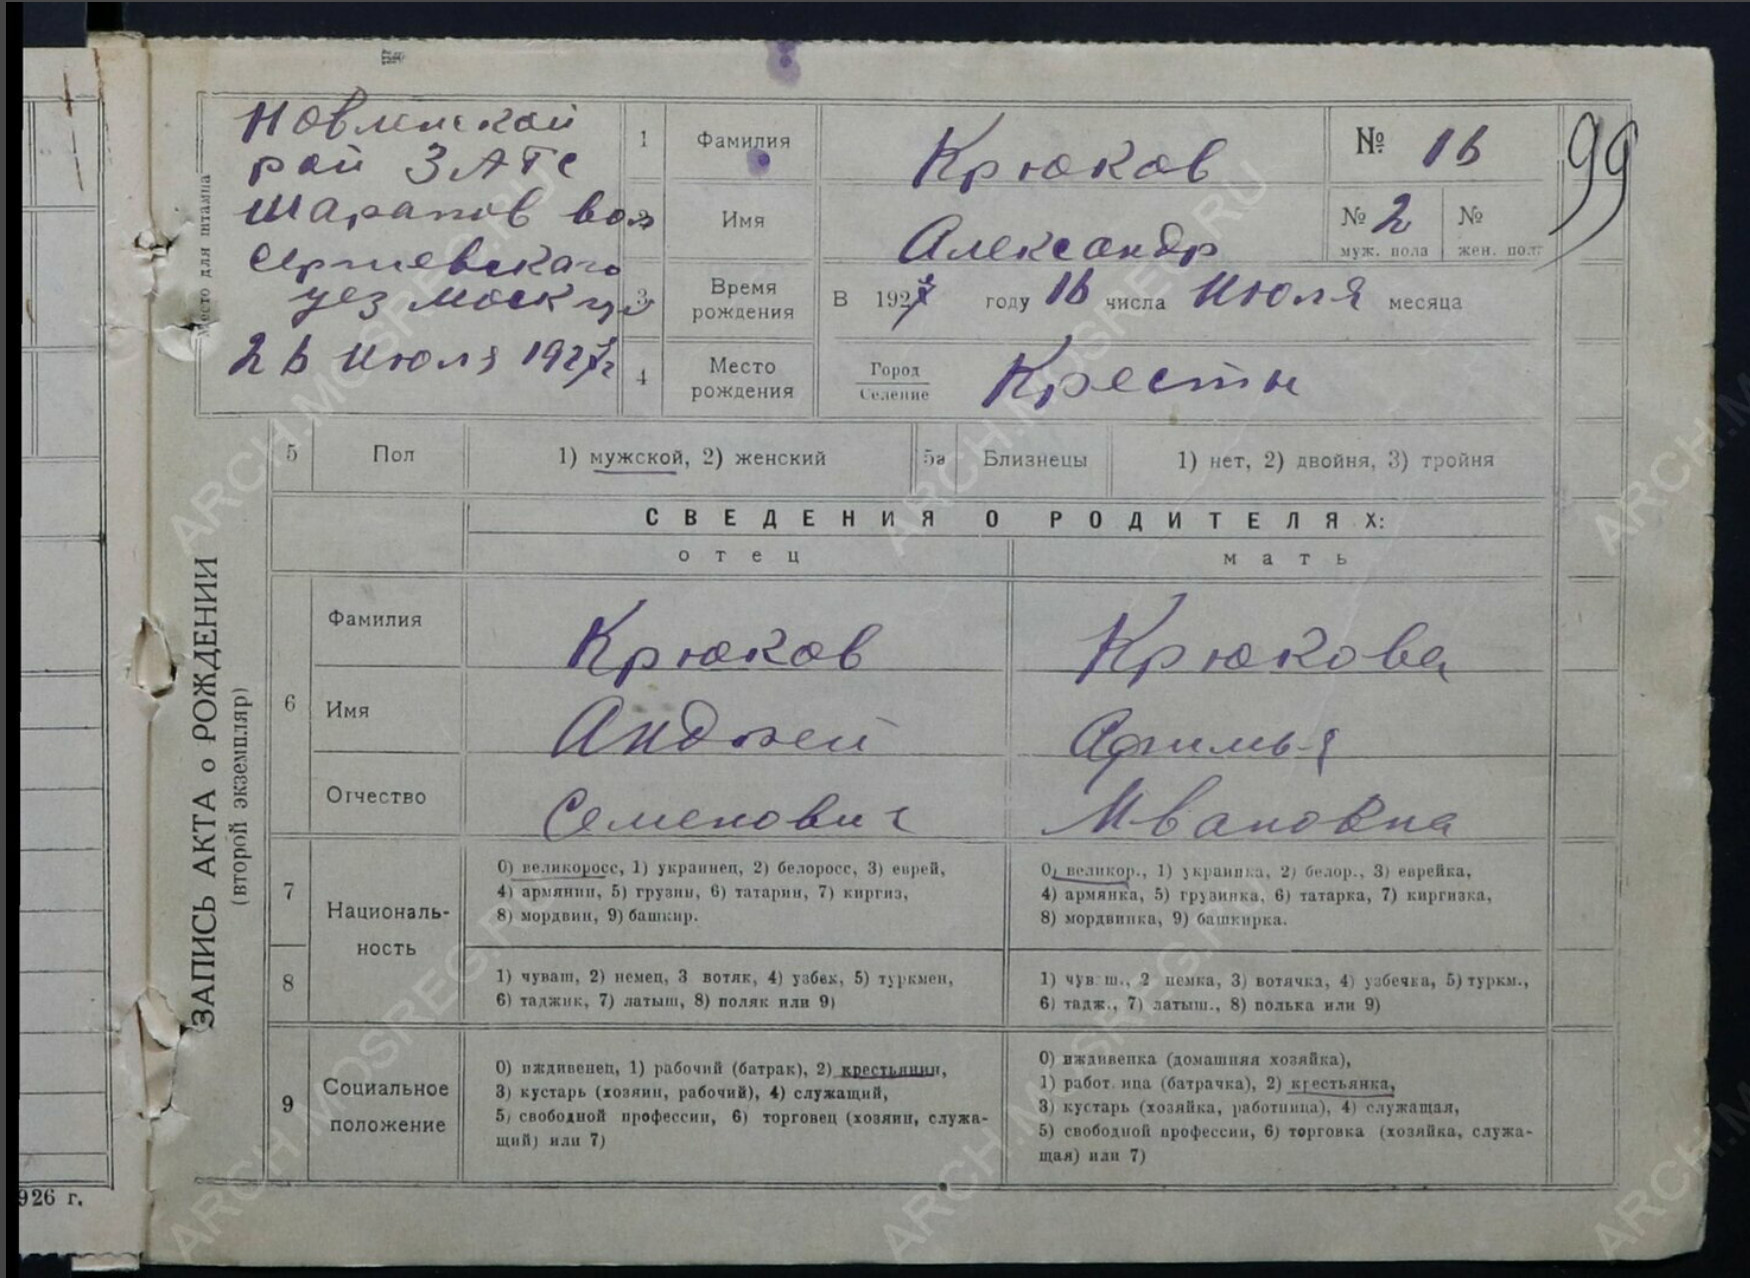 Новленской
рай ЗАГС
Шарапов вол
Сергиевскаго
уез Моск гу
26 Июля 1927г
Место для штампа
1 Фамилия Крюков № 16
99
2 Имя Александр № 2 муж. пола № жен. пол.
3 Время рождения В 1927 году 16 числа Июля месяца
4 Место рождения Город Селение Кресты
5 Пол 1) мужской, 2) женский 5а Близнецы 1) нет, 2) двойня, 3) тройня
ЗАПИСЬ АКТА о РОЖДЕНИИ
(второй экземпляр)
СВЕДЕНИЯ О РОДИТЕЛЯХ:
отец мать
6 Фамилия Крюков Крюкова
Имя Андрей Афимья
Отчество Семенович Ивановна
7 Националь-
ность
0) великоросс, 1) украинец, 2) белоросс, 3) еврей,
4) армянин, 5) грузин, 6) татарин, 7) киргиз,
8) мордвин, 9) башкир.
0) великор., 1) украинка, 2) белор., 3) еврейка,
4) армянка, 5) грузинка, 6) татарка, 7) киргизка,
8) мордвинка, 9) башкирка.
8
1) чуваш, 2) немец, 3 вотяк, 4) узбек, 5) туркмен,
6) таджик, 7) латыш, 8) поляк или 9)
1) чув ш., 2 немка, 3) вотячка, 4) узбечка, 5) туркм.,
6) тадж., 7) латыш., 8) полька или 9)
9 Социальное
положение
0) иждивенец, 1) рабочий (батрак), 2) крестьянин,
3) кустарь (хозяин, рабочий), 4) служащий,
5) свободной профессии, 6) торговец (хозяин, служа-
щий) или 7)
0) иждивенка (домашняя хозяйка),
1) работ ица (батрачка), 2) крестьянка,
3) кустарь (хозяйка, работница), 4) служащая,
5) свободной профессии, 6) торговка (хозяйка, служа-
щая) или 7)
926 г.
ARCH.MOSREG.RU